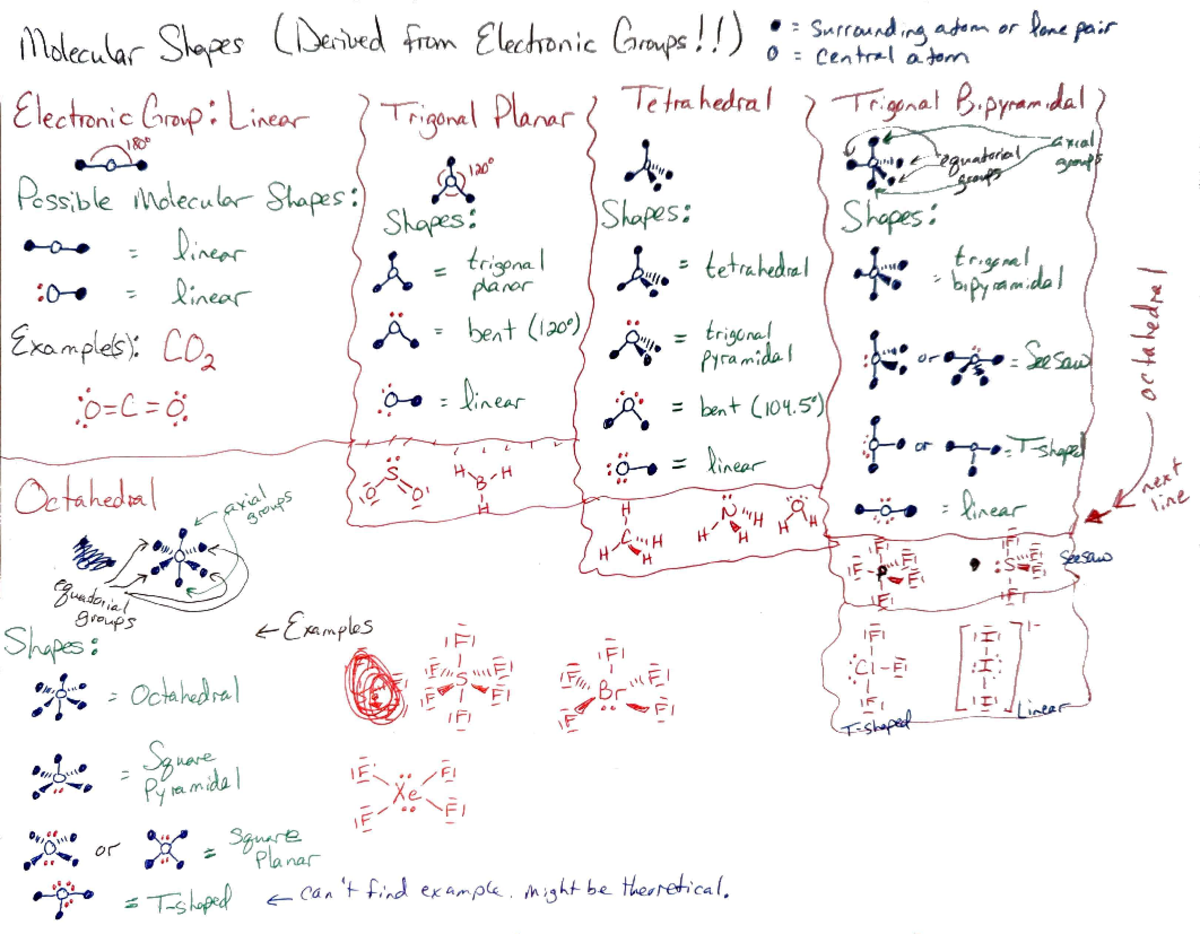 Molecular Shapes (Derived from Electronic Groups!!)
• = Surrounding atom or lone pair
o = central atom
Electronic Group: Linear
180°
Possible Molecular Shapes:
= linear
= linear
Example(s): CO2
O=C=O
Trigonal Planar
120°
Shapes:
= trigonal
planar
= bent (120°)
= linear
S
O O
H B H
H
Tetrahedral
Shapes:
= tetrahedral
= trigonal
pyramidal
= bent (104.5°)
= linear
H
H C H
H
N
H H
H
O
H H
Trigonal Bipyramidal
equatorial
groups
axial
groups
Shapes:
= trigonal
bipyramidal
or = Seesaw
or = T-shaped
= linear
octahedral
next
line
F
F P F
F
F
F
S F
F
F
Seesaw
F
Cl-F
F
T-shaped
[I
I
I] 1-
Linear
Octahedral
axial
groups
equatorial
groups
Shapes:
← Examples
= Octahedral
F
F S F
F F
F
F
F Br F
F F
= Square
Pyramidal
F F
Xe
F F
or = Square
Planar
= T-shaped ← can't find example. might be theoretical.